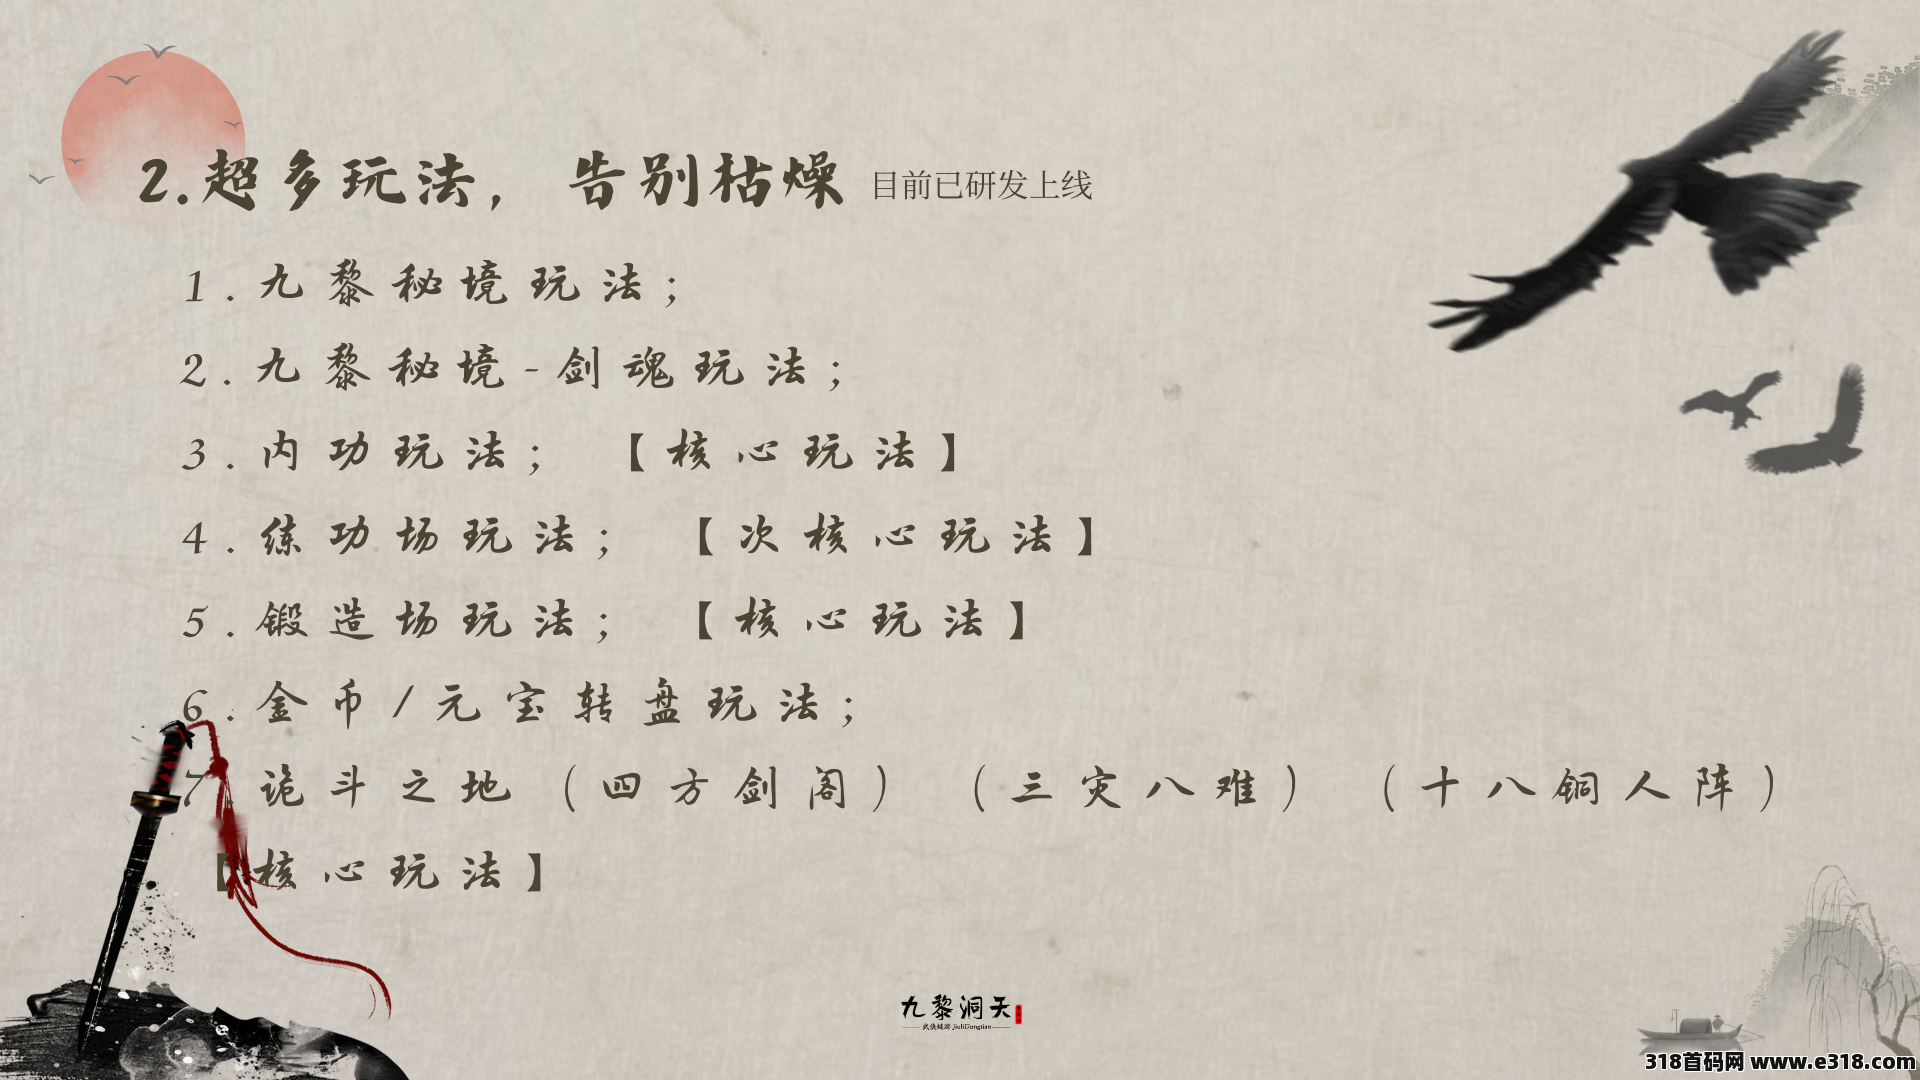 2.超多玩法，告别枯燥 目前已研发上线
1.九黎秘境玩法;
2.九黎秘境-剑魂玩法;
3.内功玩法; 【核心玩法】
4.练功场玩法; 【次核心玩法】
5.锻造场玩法; 【核心玩法】
6.金币/元宝转盘玩法;
7.诡斗之地（四方剑阁）（三灾八难）（十八铜人阵）
【核心玩法】
九黎洞天
武侠链游 JiuliDongtian
318首码网 www.e318.com